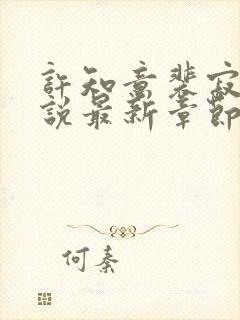 許知意裴寂
說最新章節
何秦